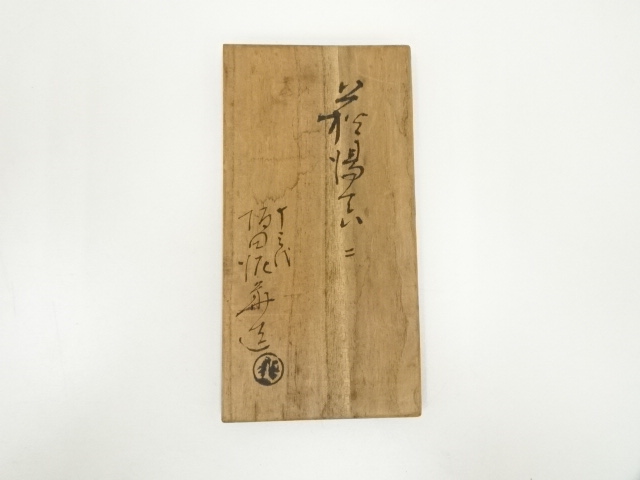 萩湯呑 二
十三代
坂田泥華造